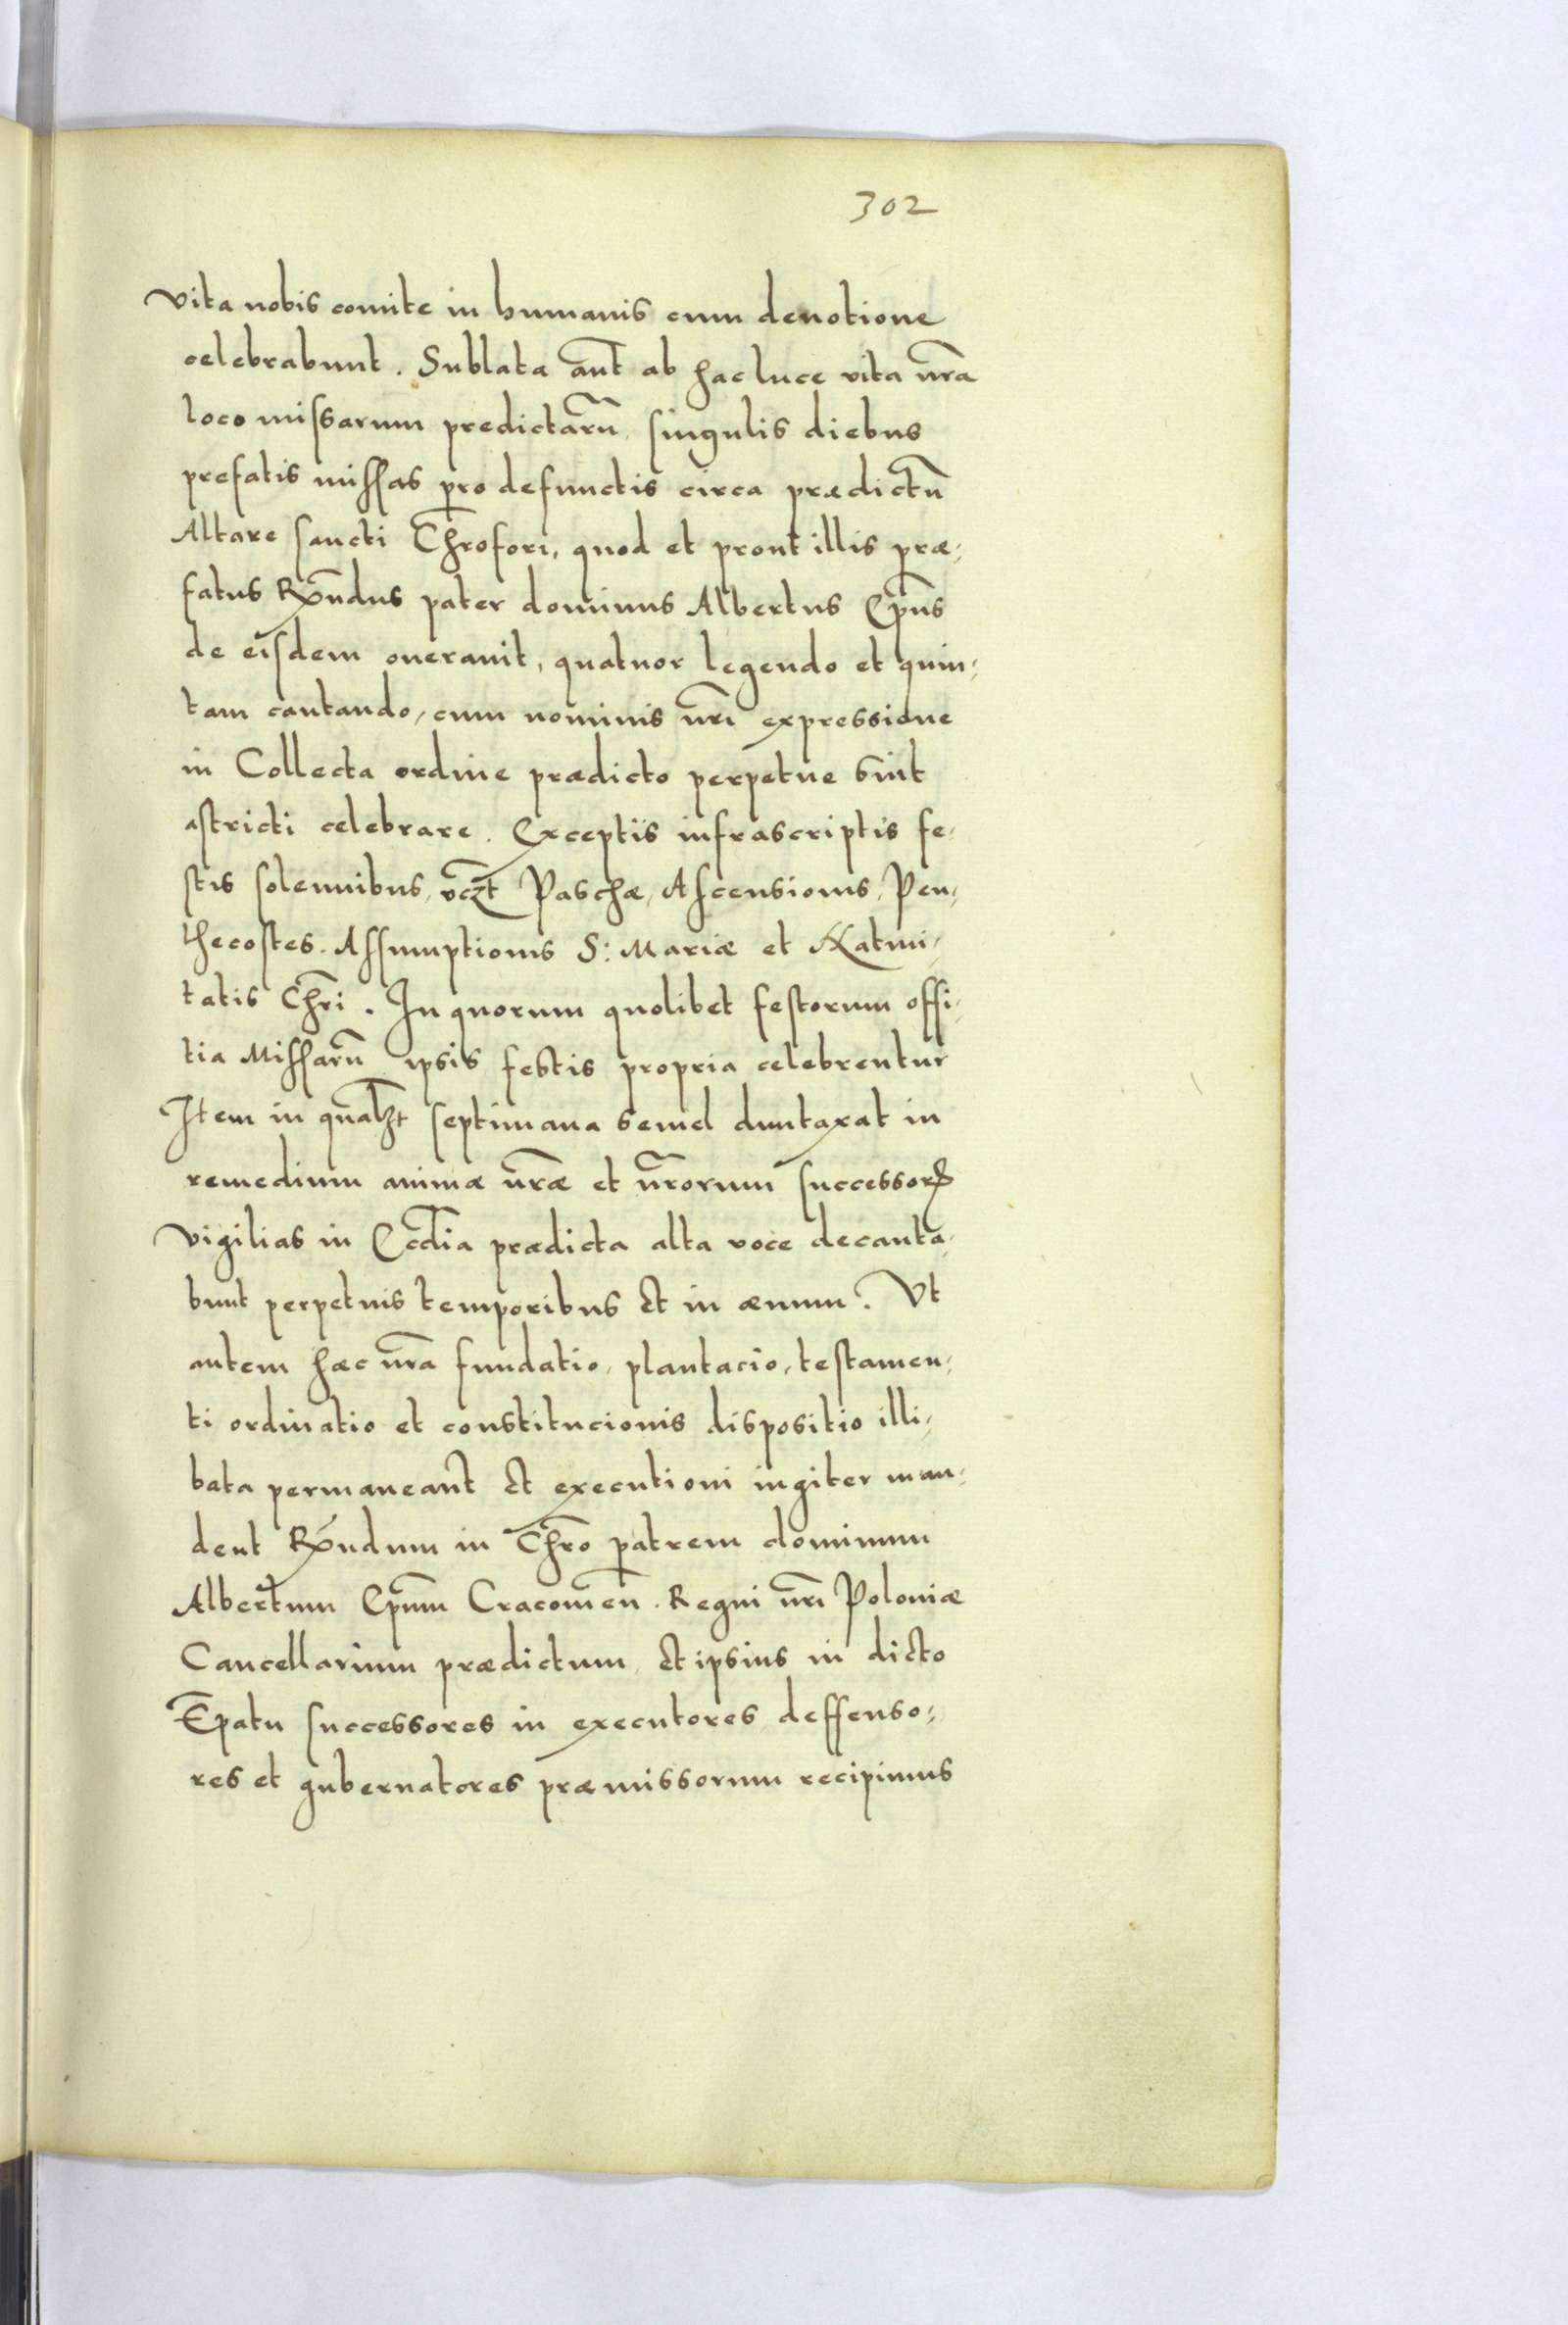 302
Vita nobis comite in humanis cum devotione
celebrabunt. Sublata aut̃ ab hac luce vita nr̃a
loco missarum predictarũ, singulis diebus
prefatis missas pro defunctis circa prædictũ
Altare sancti Chr̃ofori, quod et prout illis præ-
fatus Rx̃ndus pater dominus Albertus Ep̃us
de eisdem oneravit, quatuor legendo et quin-
tam cantando, cum nominis nr̃i expressione
in Collecta ordine prædicto perpetue sint
astricti celebrare. Exceptis infrascriptis fe-
stis solennibus, vcz̃t Paschæ, Ascensionis, Pen-
thecostes. Assumptionis S: Mariæ et Nativi-
tatis Chr̃i. In quorum quolibet festorum offi-
tia Missarũ ipsis festis propria celebrentur
Item in qual̃zt septimana semel duntaxat in
remedium animæ nr̃æ et nr̃orum successorꝝ
Vigilias in Eccl̃ia prædicta alta voce decanta-
bunt perpetuis temporibus et in ævum. Vt
autem hæc nr̃a fundatio, plantacio, testamen-
ti ordinatio et constitucionis dispositio illi-
bata permaneant et executioni iugiter man-
dent Rx̃ndum in Chr̃o patrem dominum
Albertum Ep̃um Cracovien̄. Regni nr̃i Poloniæ
Cancellarium prædictum, et ipsius in dicto
Ep̃atu successores in executores deffenso-
res et gubernatores præmissorum recipimus